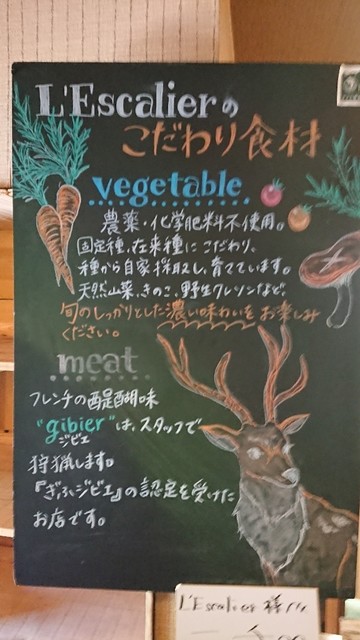 L'Escalierの
こだわり食材
vegetable
農薬・化学肥料不使用。
固定種、在来種にこだわり、
種から自家採取し、育てています。
天然山菜、きのこ、野生クレソンなど、
旬のしっかりとした濃い味わいをお楽しみ
ください。
meat
フレンチの醍醐味
"gibier"は、スタッフで
ジビエ
狩猟します。
『ぎふジビエ』の認定を受けた
お店です。
L'Escalier 様